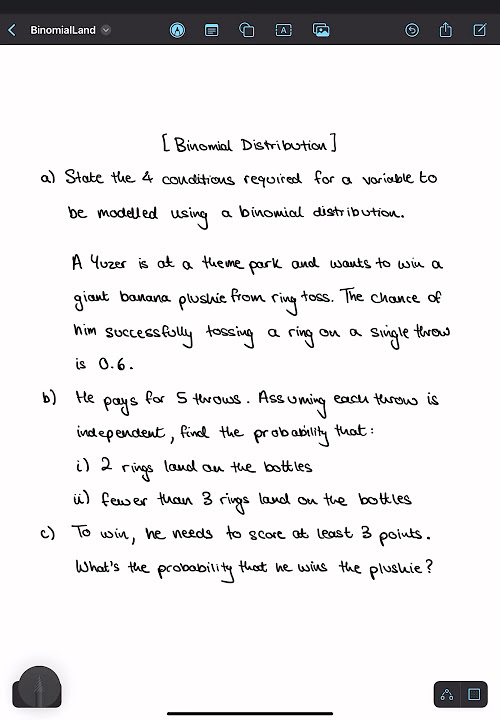 BinomialLand
[Binomial Distribution]
a) State the 4 conditions required for a variable to
be modelled using a binomial distribution.
A Yuzer is at a theme park and wants to win a
giant banana plushie from ring toss. The chance of
him successfully tossing a ring on a single throw
is 0.6.
b) He pays for 5 throws. Assuming each throw is
independent, find the probability that:
i) 2 rings land on the bottles
ii) fewer than 3 rings land on the bottles
c) To win, he needs to score at least 3 points.
What's the probability that he wins the plushie?